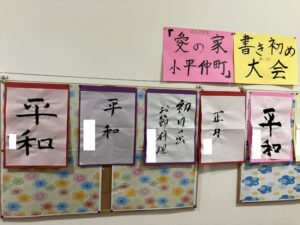 『愛の家
小平仲町』
書き初め
大会
平和
平和
初日の出
お節料理
正月
平和